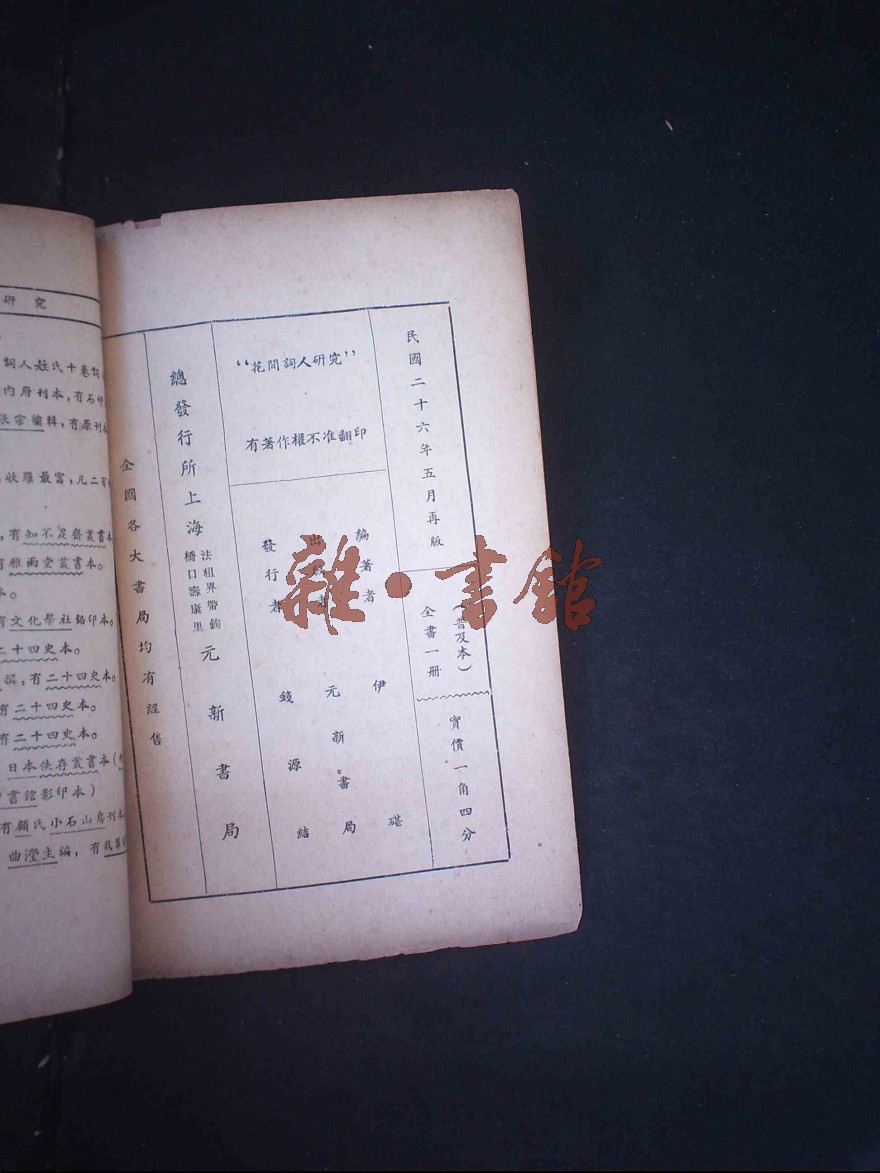 民國二十六年五月再版
(普及本)
全書一册
實價一角四分
“花間詞人研究”
有著作權不准翻印
編著者 伊碪
出版者 元新書局
發行者 錢源結
總發行所上海
法租界帶鉤
橋口壽康里
元新書局
全國各大書局均有經售
研究
詞人姓氏十卷
內府刊本,有石印
張宗橚輯,有原刊本
收羅最富,凡二百
有知不足齋叢書本
有雅雨堂叢書本。
本。
有文化學社鉛印本。
二十四史本。
撰,有二十四史本。
有二十四史本。
有二十四史本。
日本佚存叢書本(
書館影印本)
有顧氏小石山房刊本
曲瀅生編,有我
雜·書館